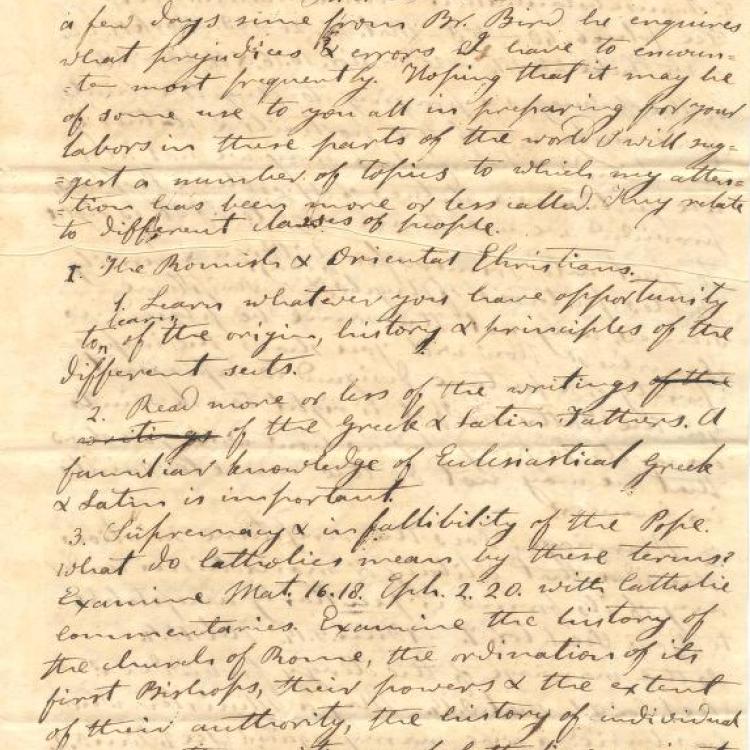 a few days since from Br. Bird he enquires
what prejudices & errors I have to encoun-
-ter most frequently. Hoping that it may be
of some use to you all in preparing for your
labors in these parts of the world I will sug-
-gest a number of topics to which my atten-
-tion has been more or less called. They relate
to different classes of people.
I. The Romish & Oriental Christians.
1. Learn whatever you have opportunity
to learn of the origin, history & principles of the
different sects.
2. Read more or less of the writings of the
writings of the Greek & Latin Fathers. A
familiar knowledge of Eclesiastical Greek
& Latin is important.
3. Supremacy & infallibility of the Pope.
What do Catholics mean by these terms?
Examine Mat. 16.18. Eph. 2.20. with Catholic
commentaries. Examine the history of
the church of Rome, the ordination of its
first Bishops, their powers & the extent
of their authority, the history of individual